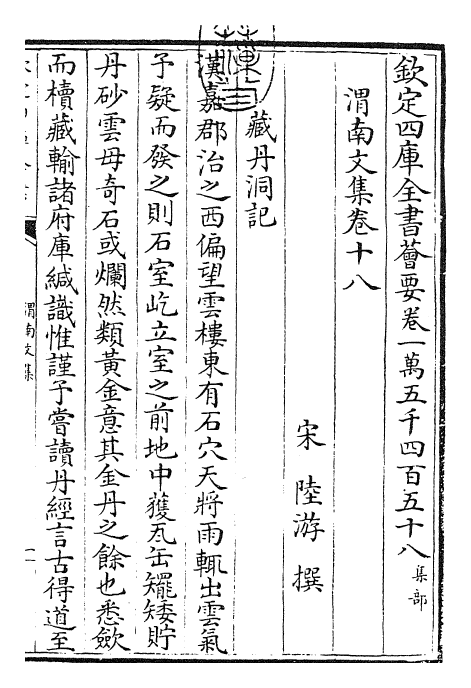 欽定四庫全書薈要卷一萬五千四百五十八集部
渭南文集卷十八
宋陸游撰
藏丹洞記
漢嘉郡治之西偏望雲樓東有石穴天將雨輒出雲氣
予疑而發之則石室屹立室之前地中獲瓦缶矲矮貯
丹砂雲母奇石或爛然類黃金意其金丹之餘也悉歛
而櫝藏輸諸府庫緘識惟謹予嘗讀丹經言古得道至
渭南文集
一